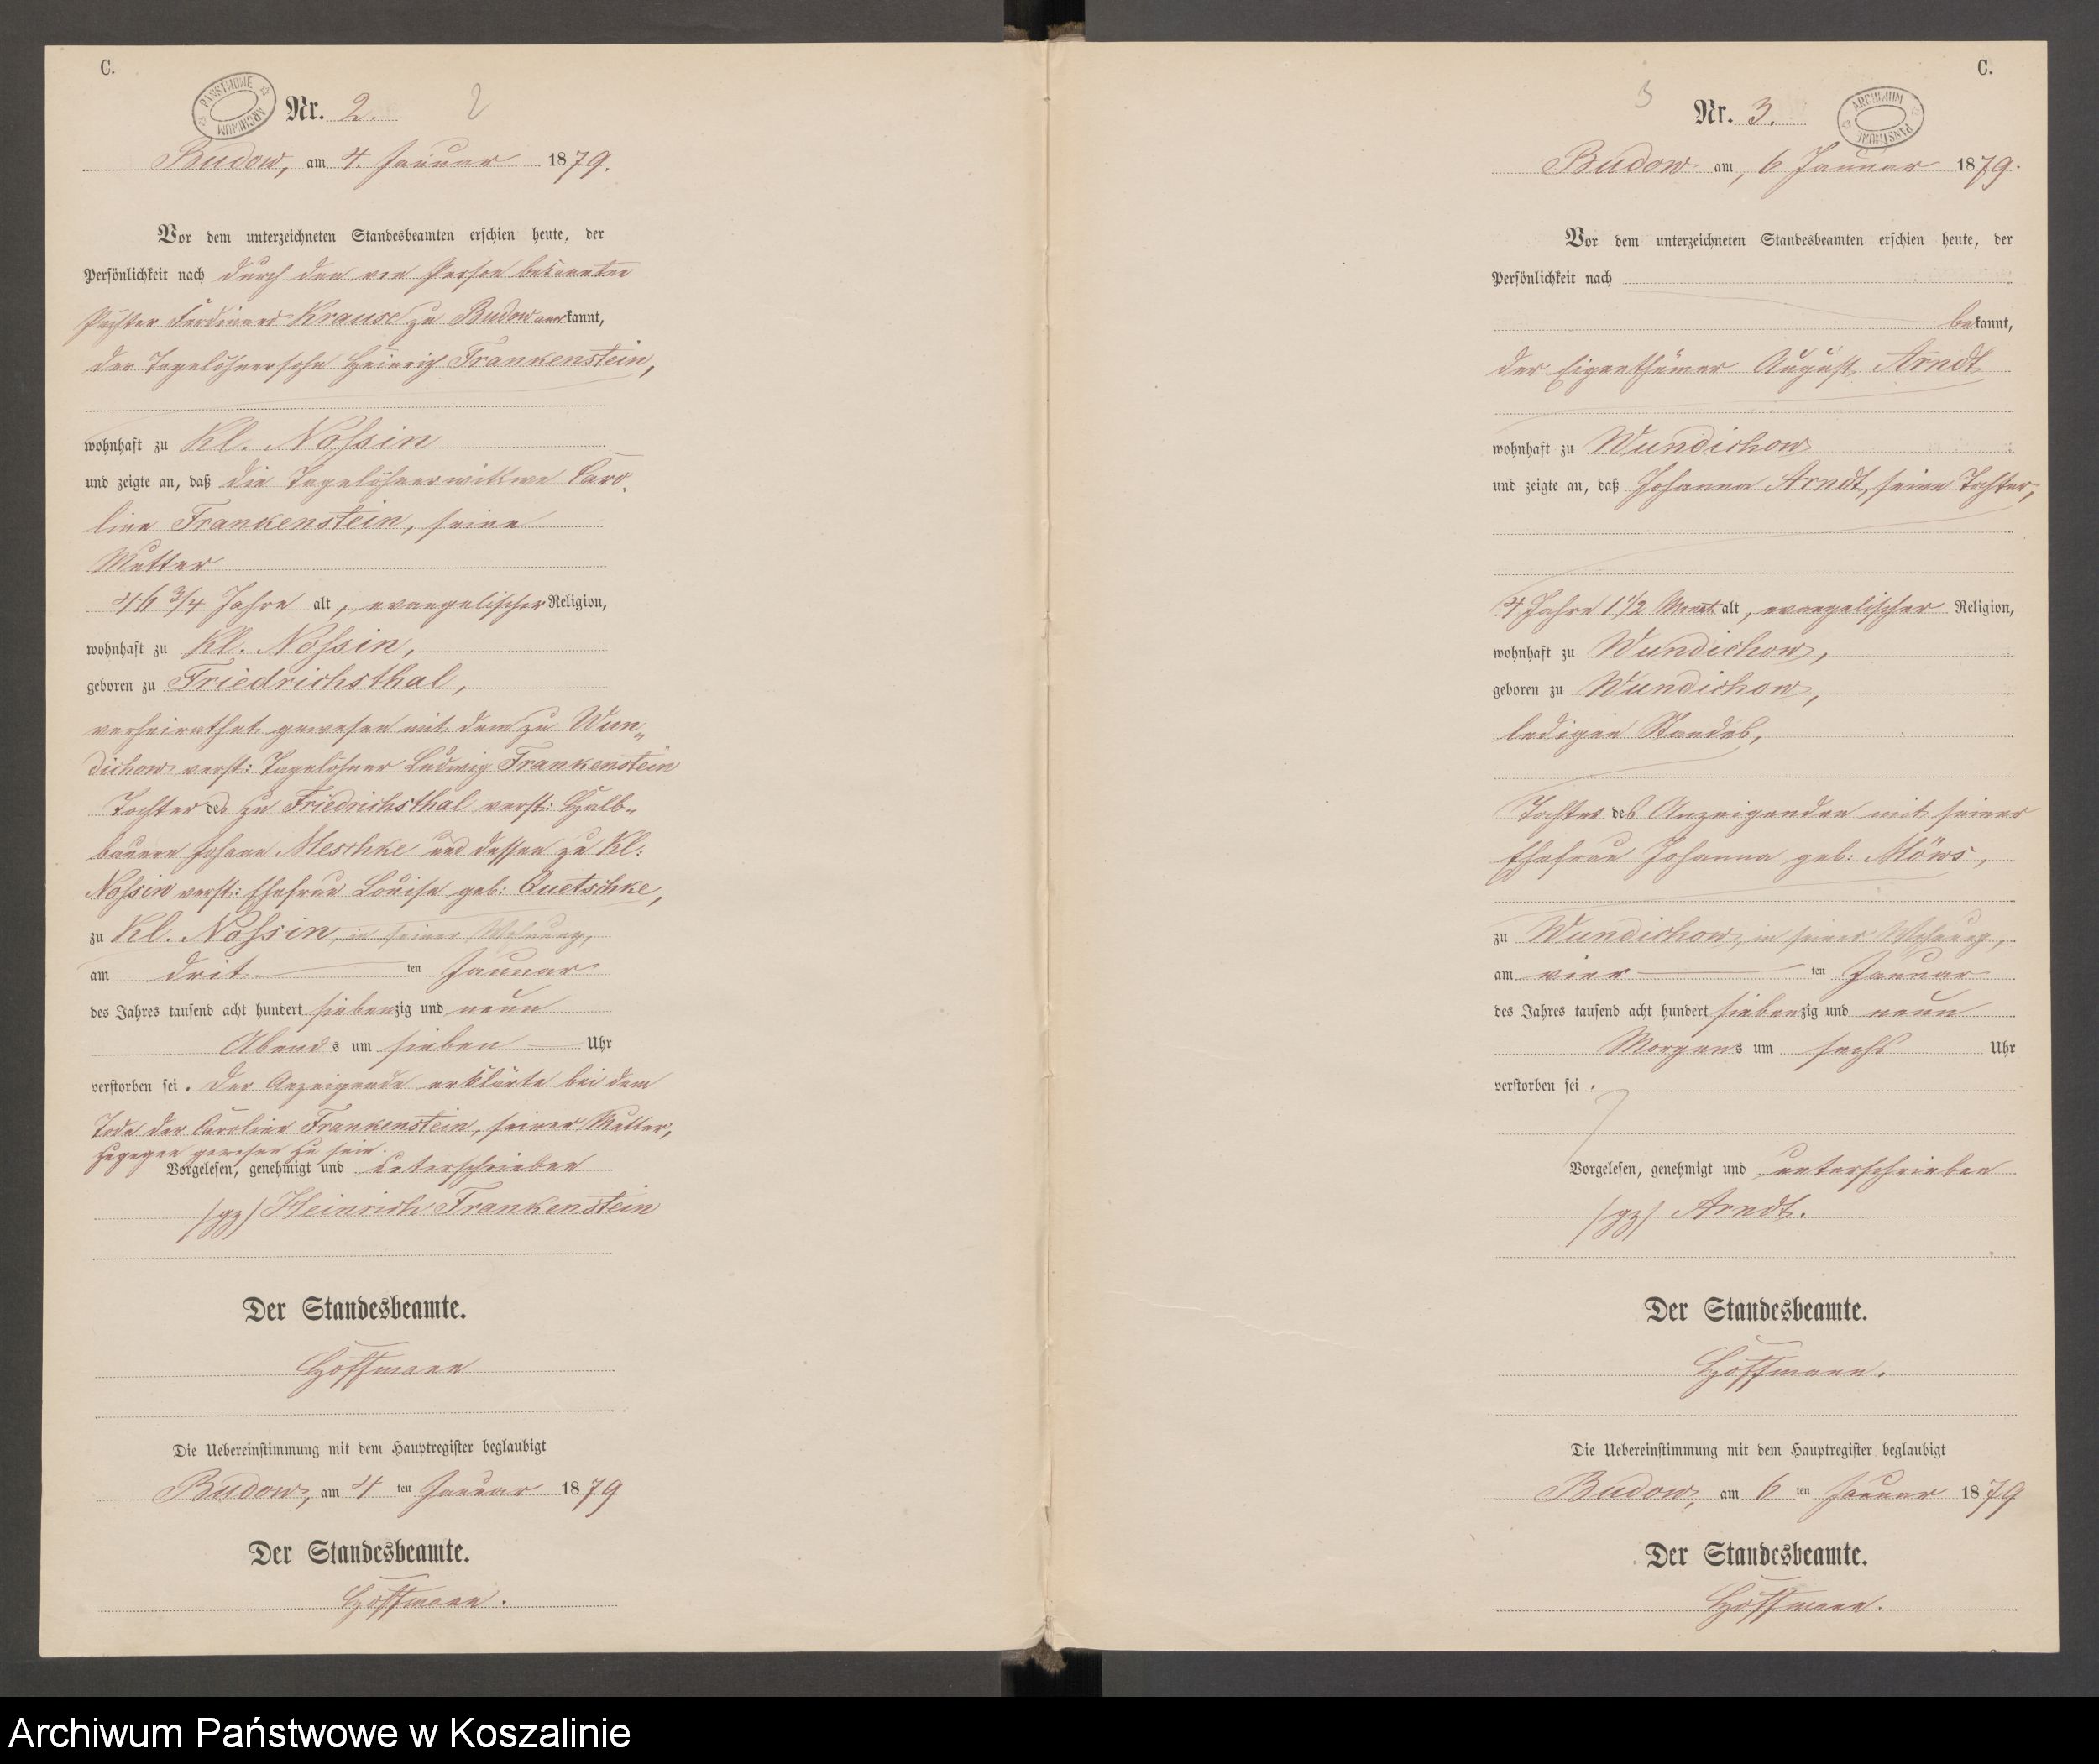 C.
PAŃSTWOWE ARCHIWUM
Nr. 2. 2
Budow, am 4. Januar 1879.
Vor dem unterzeichneten Standesbeamten erschien heute, der
Persönlichkeit nach durch den von Person bekannten
Pächter Ferdinand Krause zu Budow anerkannt,
der Tagelöhnersohn Heinrich Frankenstein,
wohnhaft zu Kl. Nossin
und zeigte an, daß die Tagelöhnerwittwe Caro-
line Frankenstein, seine
Mutter
46 3/4 Jahre alt, evangelischer Religion,
wohnhaft zu Kl. Nossin,
geboren zu Friedrichsthal,
verheirathet gewesen mit dem zu Wun-
dichow verst: Tagelöhner Ludwig Frankenstein
Tochter des zu Friedrichsthal verst: Halb-
bauern Johann Meschke und dessen zu Kl:
Nossin verst: Ehefrau Louise geb: Quetschke,
zu Kl. Nossin, in seiner Wohnung,
am drit ten Januar
des Jahres tausend acht hundert siebenzig und neun
Abends um sieben Uhr
verstorben sei. Der Anzeigende erklärte bei dem
Tode der Caroline Frankenstein, seiner Mutter,
zugegen gewesen zu sein.
Vorgelesen, genehmigt und unterschrieben
/gz/ Heinrich Frankenstein
Der Standesbeamte.
Hoffmann
Die Uebereinstimmung mit dem Hauptregister beglaubigt
Budow, am 4 ten Januar 1879
Der Standesbeamte.
Hoffmann.
C.
3 Nr. 3.
ARCHIWUM PAŃSTWOWE
Budow am, 6 Januar 1879.
Vor dem unterzeichneten Standesbeamten erschien heute, der
Persönlichkeit nach
bekannt,
der Eigenthümer August Arndt
wohnhaft zu Wundichow
und zeigte an, daß Johanna Arndt, seine Tochter,
4 Jahre 1 1/2 Monat alt, evangelischer Religion,
wohnhaft zu Wundichow,
geboren zu Wundichow,
ledigen Standes,
Tochter des Anzeigenden mit seiner
Ehefrau Johanna geb: Möws,
zu Wundichow, in seiner Wohnung,
am vier ten Januar
des Jahres tausend acht hundert siebenzig und neun
Morgens um sechs Uhr
verstorben sei.
Vorgelesen, genehmigt und unterschrieben
/gz/ Arndt.
Der Standesbeamte.
Hoffmann.
Die Uebereinstimmung mit dem Hauptregister beglaubigt
Budow, am 6 ten Januar 1879
Der Standesbeamte.
Hoffmann.
Archiwum Państwowe w Koszalinie